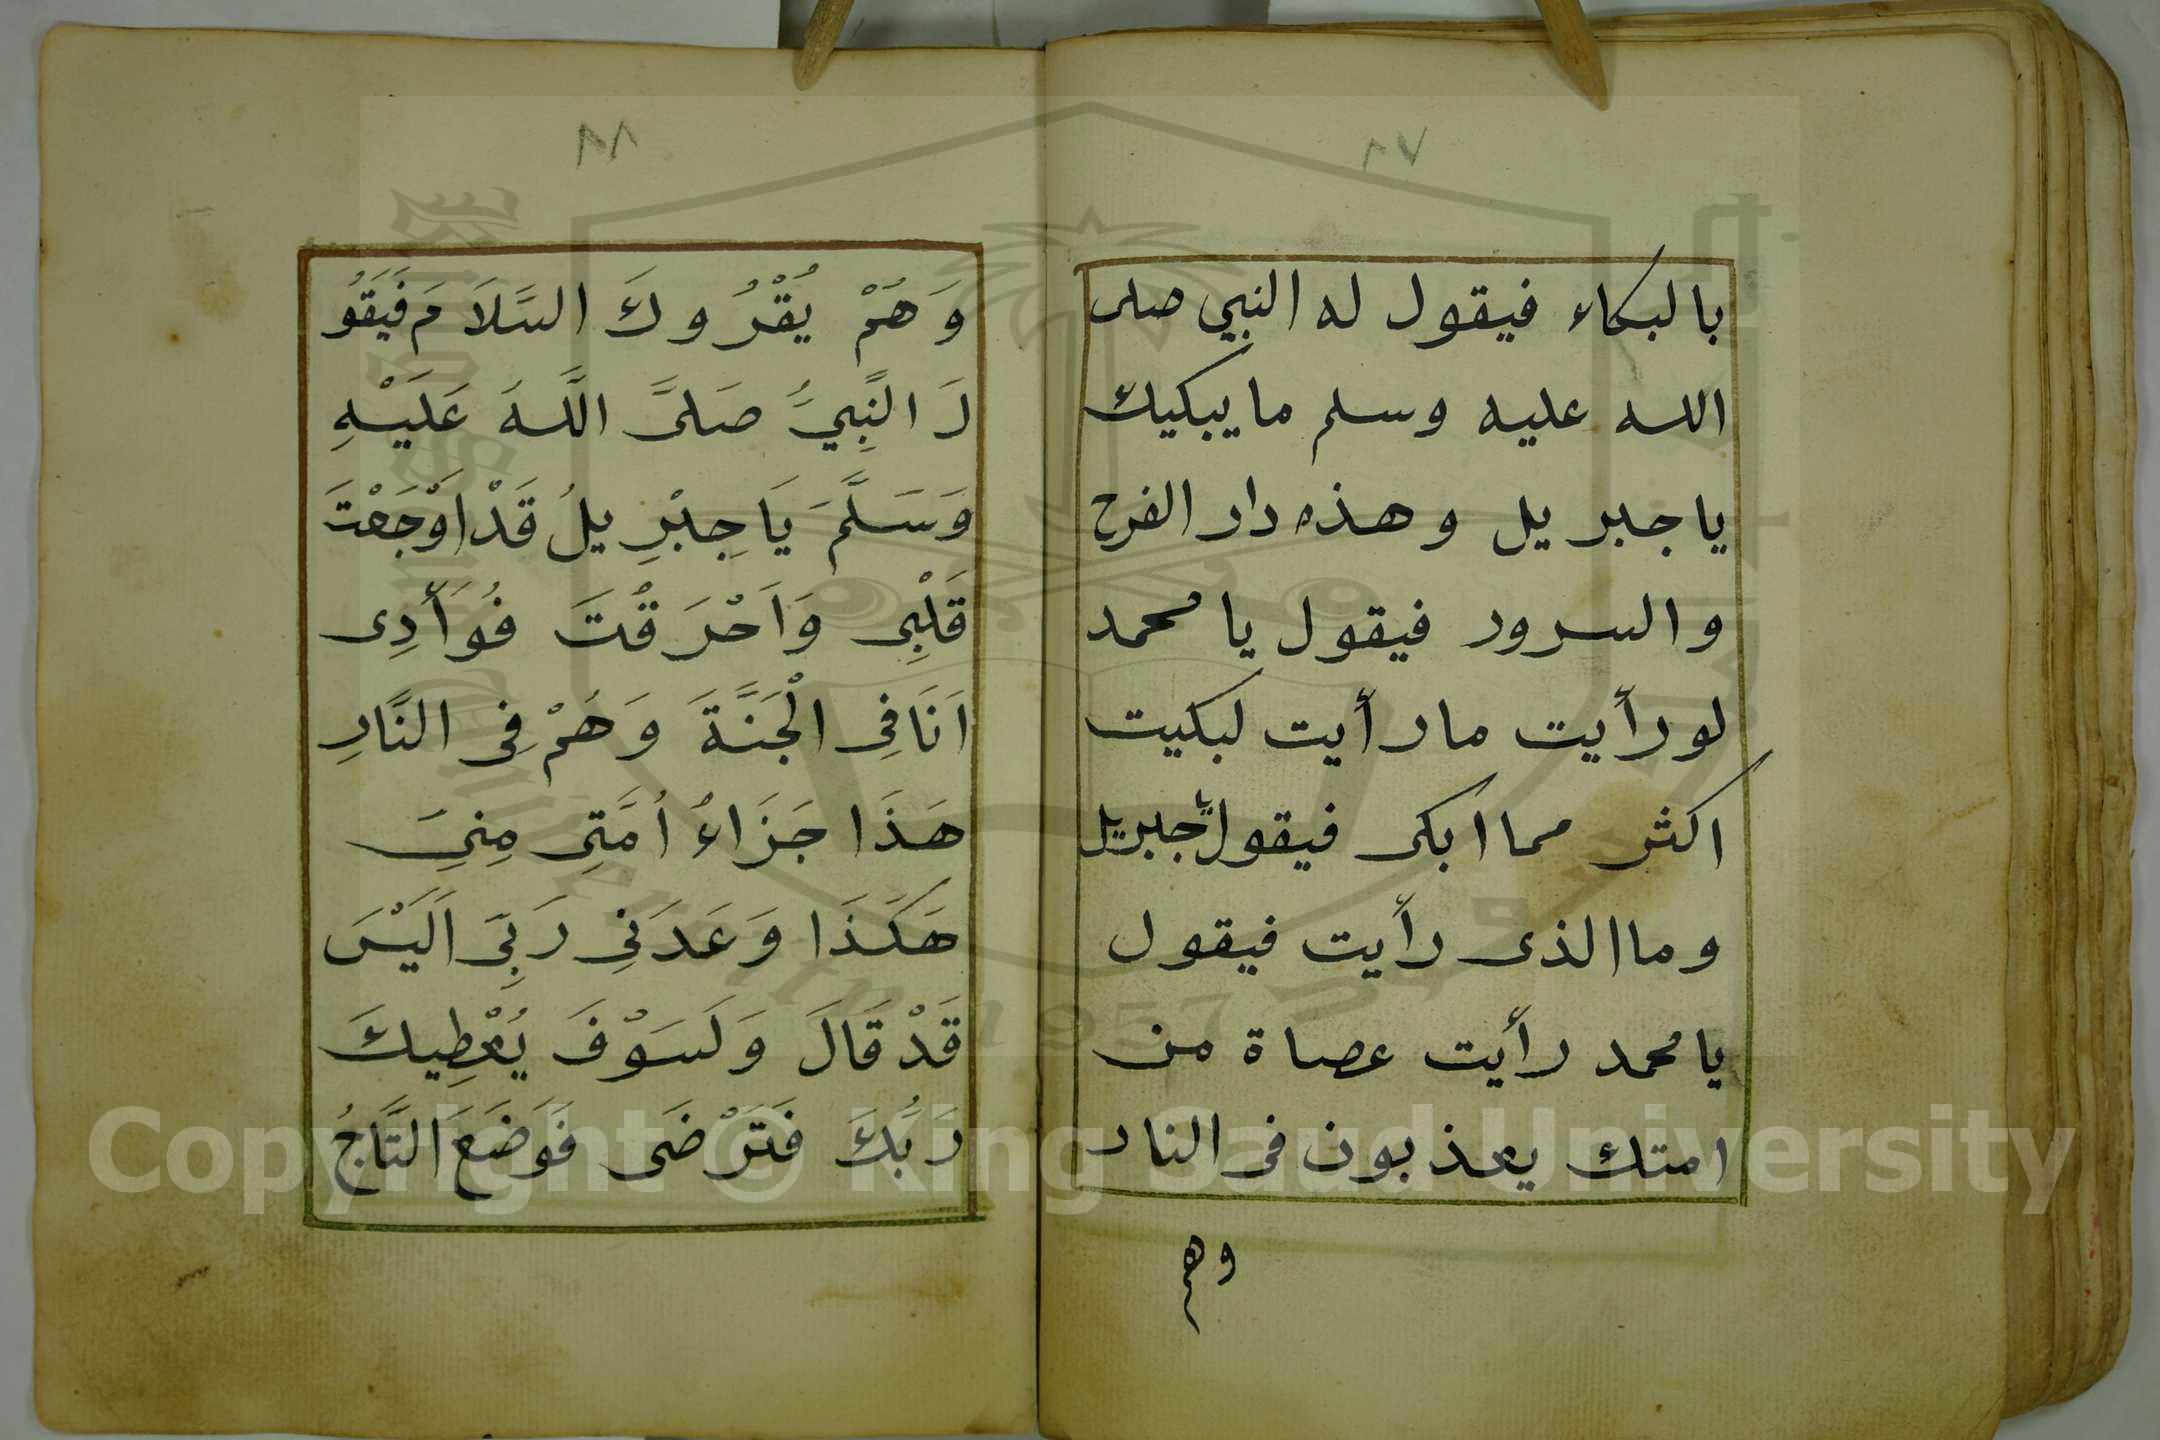 ٨٧
بالبكاء فيقول له النبي صلى
الله عليه وسلم ما يبكيك
يا جبريل وهذه دار الفرح
والسرور فيقول يا محمد
لو رأيت ما رأيت لبكيت
اكثر مما ابكى فيقول يا جبريل
وما الذى رأيت فيقول
يا محمد رأيت عصاة من
امتك يعذبون فى النار
وهم
٨٨
وَهُمْ يُقْرُوكَ السَّلَامَ فَيَقُو
لَ النَّبِيُّ صَلىَّ اللَّهَ عَلَيْهِ
وَسَلَّمَ يَا جِبْرِيلُ قَدْ اَوْجَعْتَ
قَلْبِى وَاَحْرَقْتَ فُوَأَدِى
اَنَا فِى الْجَنَّةَ وَهُمْ فِى النَّارِ
هَذَا جَزَاءُ اُمَّتِى مِنِىَ
هَكَذَا وَعَدَنِى رَبِىّ اَلَيْسَ
قَدْ قَالَ وَلَسَوْفَ يُعْطِيكَ
رَبُّكَ فَتَرْضَى فَوَضَعَ التَّاجُ
Copyright © King Saud University
1957